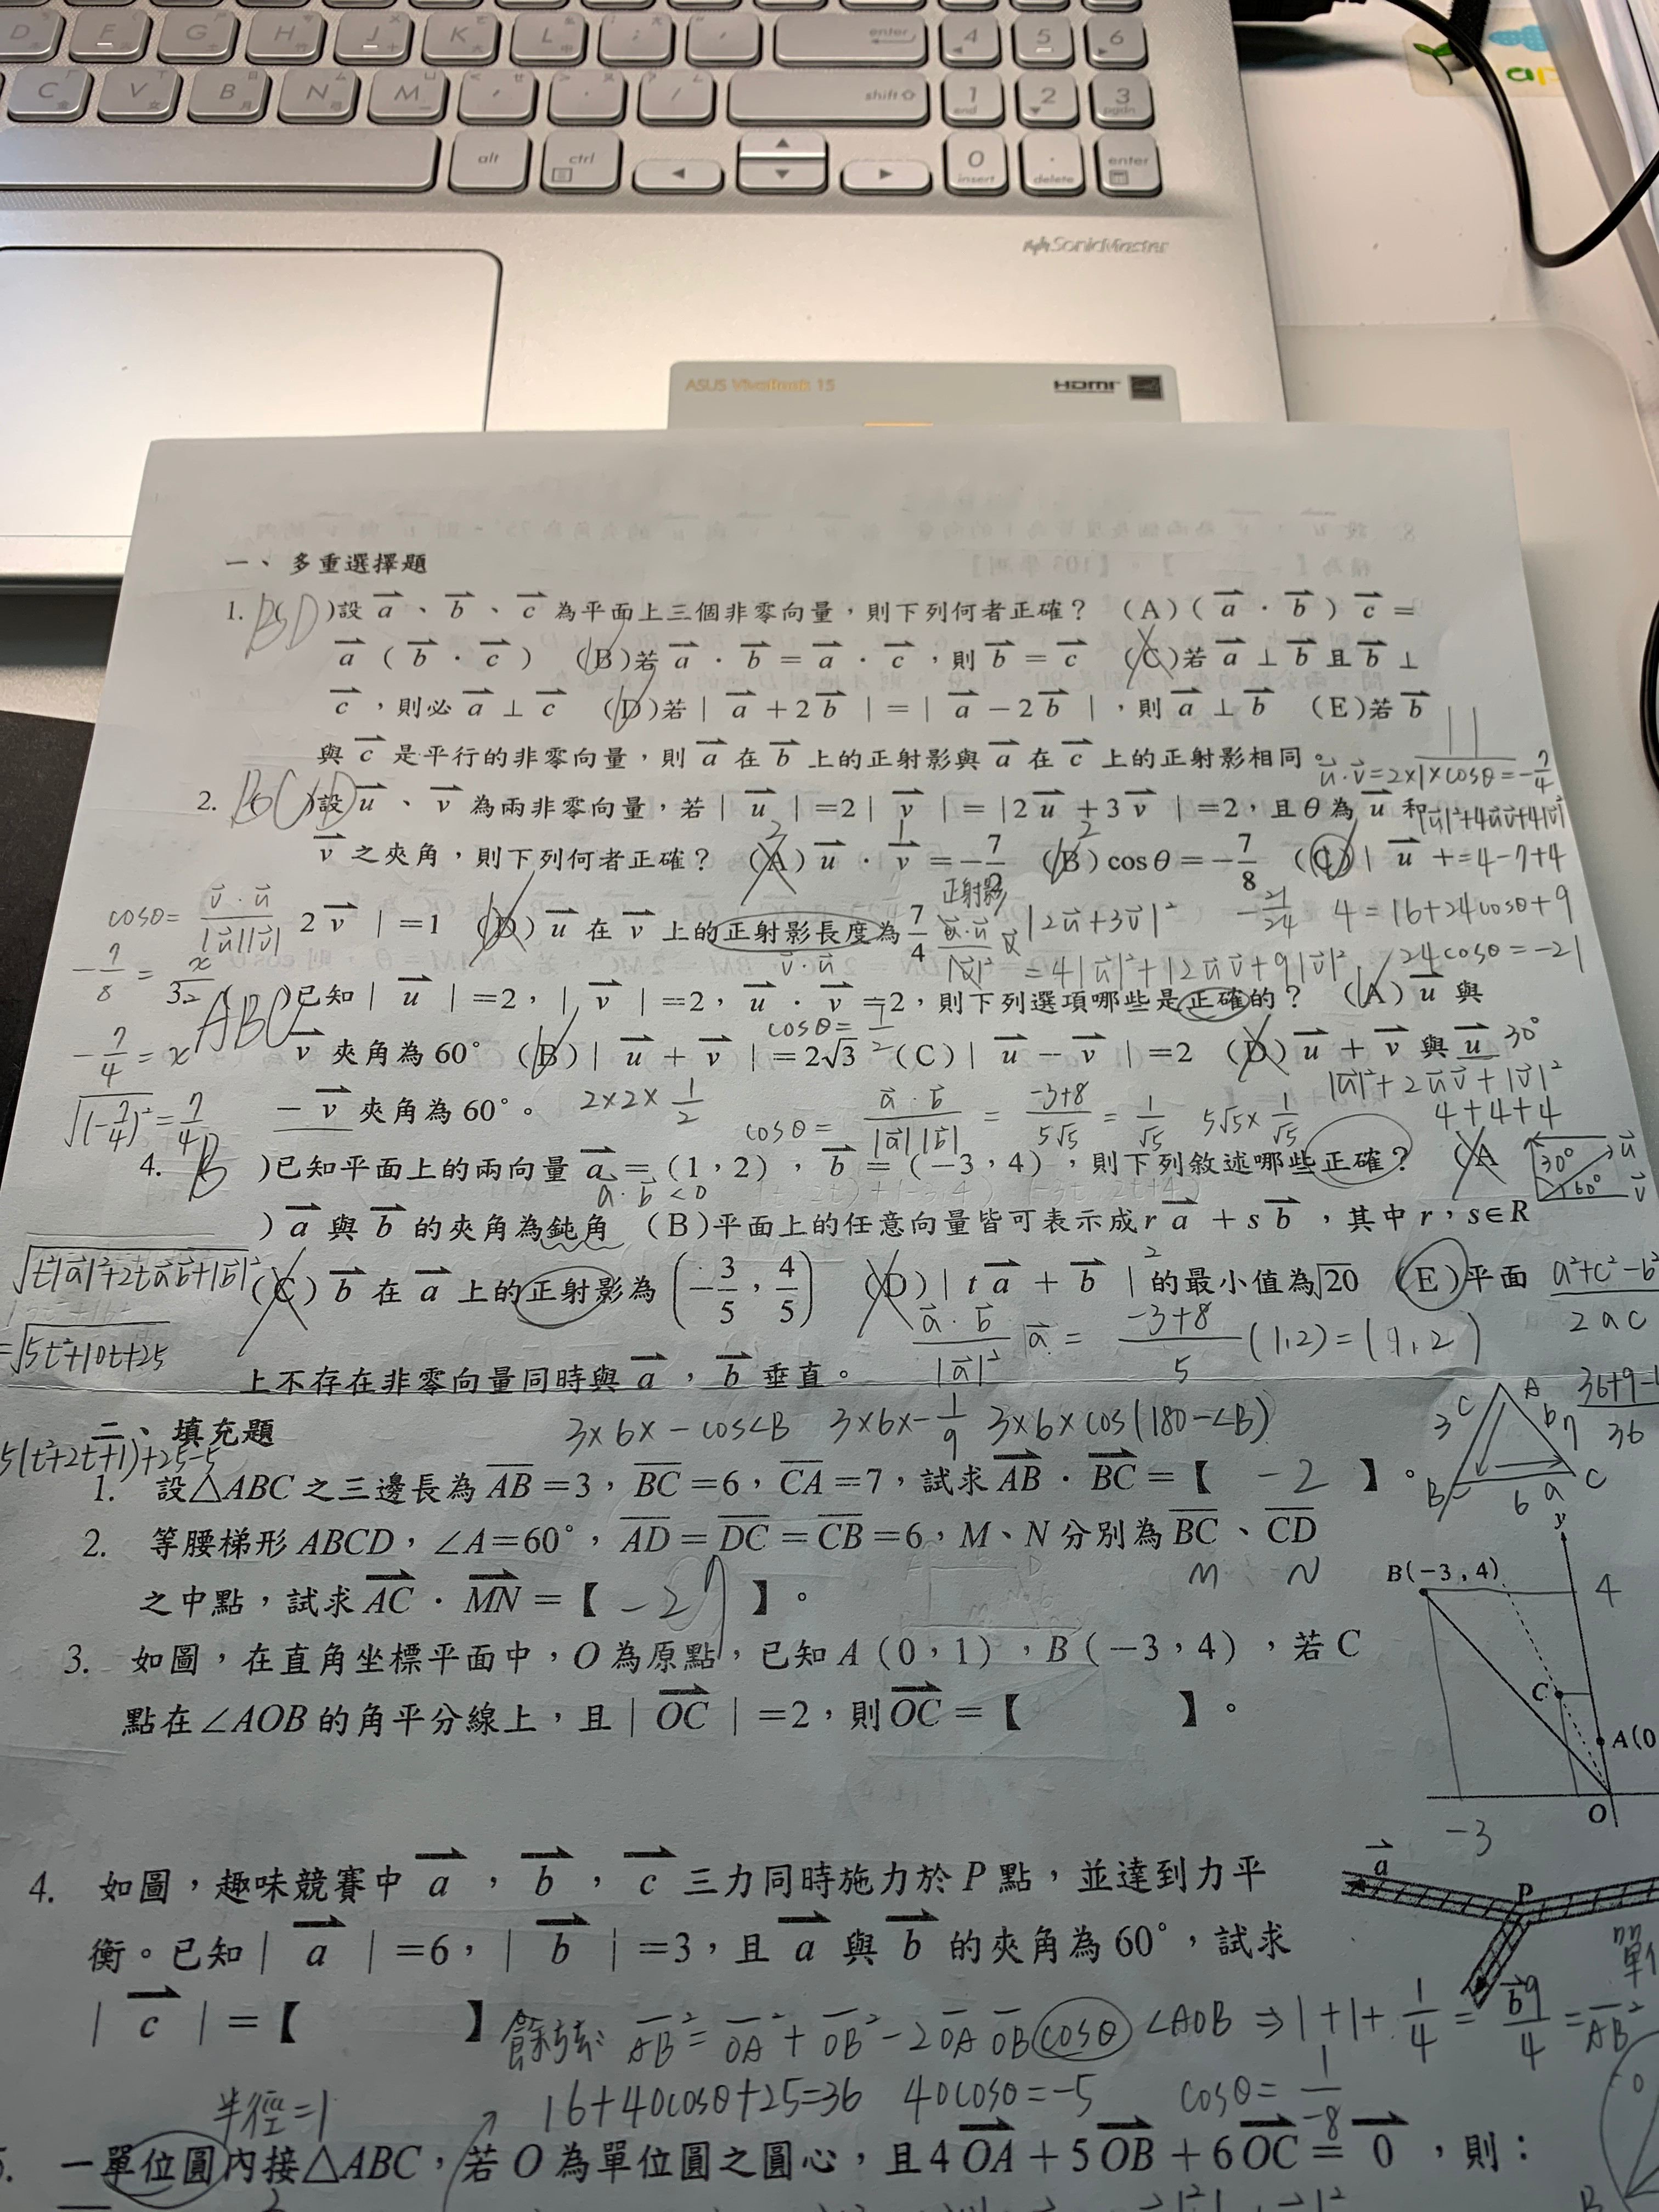 D F G H J K L ; ' enter 4 5 6
C V B N M , . / shift 1 end 2 3 pgdn
alt ctrl 0 insert . delete enter
SonicMaster
ASUS VivoBook 15 HDMI
一、多重選擇題
1. BD )設 a、b、c 為平面上三個非零向量,則下列何者正確? (A)( a · b ) c =
a ( b · c ) (B)若 a · b = a · c ,則 b = c (C)若 a ⊥ b 且 b ⊥
c ,則必 a ⊥ c (D)若 | a +2 b | = | a -2 b | ,則 a ⊥ b (E)若 b
與 c 是平行的非零向量,則 a 在 b 上的正射影與 a 在 c 上的正射影相同。
u·v=2×1×cosθ=-7/4
2. BCD )設 u、v 為兩非零向量,若 | u |=2| v |=|2 u +3 v |=2,且θ為 u 和
|u|²+4uv+4|v|²
v 之夾角,則下列何者正確? (A) u · v =-7/ (B) cosθ=-7/8 (C) | u +
=4-7+4
2 v |=1 (D) u 在 v 上的正射影長度為 7/4
cosθ= v·u/|u||v|
正射影
|2u+3v|² -21/24 4=16+24cosθ+9
=4|u|²+12uv+9|v|² 24cosθ=-21
-7/8 = x/
ABC )已知 | u |=2,| v |=2,u · v =2,則下列選項哪些是正確的? (A) u 與
cosθ=1/2
-7/4 = x
v 夾角為60° (B) | u + v |=2√3 (C) | u - v |=2 (D) u + v 與 u
30°
- v 夾角為60°。 2×2×1/2
|u|²+2uv+|v|²
4+4+4
√(-7/4)²=7/4
cosθ= a·b/|a||b| = -3+8/5√5 = 1/√5 5√5×1/√5
4. B )已知平面上的兩向量 a =(1,2),b =(-3,4),則下列敘述哪些正確? (A
a·b<0
30° 60° u v
) a 與 b 的夾角為鈍角 (B)平面上的任意向量皆可表示成 r a + s b ,其中 r,s∈R
√t²|a|²+2tab+|b|²
(C) b 在 a 上的正射影為 (-3/5,4/5) (D) | t a + b | 的最小值為√20 (E)平面
a²+c²-b²/2ac
=√5t²+10t+25
a·b/|a|² a = -3+8/5 (1,2)=(1,2)
上不存在非零向量同時與 a ,b 垂直。
二、填充題
3×6×-cos∠B 3×6×-1/9 3×6×cos(180-∠B)
5(t²+2t+1)+25-5
1. 設△ABC 之三邊長為 AB=3,BC=6,CA=7,試求 AB · BC=【 -2 】。
3 C A b 7 B 6 a C
2. 等腰梯形 ABCD,∠A=60°,AD=DC=CB=6,M、N 分別為 BC、CD
M N
之中點,試求 AC · MN=【 -27 】。
B(-3,4) y 4
3. 如圖,在直角坐標平面中,O 為原點,已知 A(0,1),B(-3,4),若 C
點在∠AOB 的角平分線上,且 | OC |=2,則 OC=【 】。
C A(0 O
-3
4. 如圖,趣味競賽中 a ,b ,c 三力同時施力於 P 點,並達到力平
a P b
衡。已知 | a |=6,| b |=3,且 a 與 b 的夾角為60°,試求
| c |=【 】
餘弦 AB²=OA²+OB²-2OA OB cosθ ∠AOB ⇒ 1+1+1/4=9/4=AB²
半徑=1 16+40cosθ+25=36 40cosθ=-5 cosθ=1/-8
一單位圓內接△ABC,若 O 為單位圓之圓心,且4 OA +5 OB +6 OC = 0 ,則: